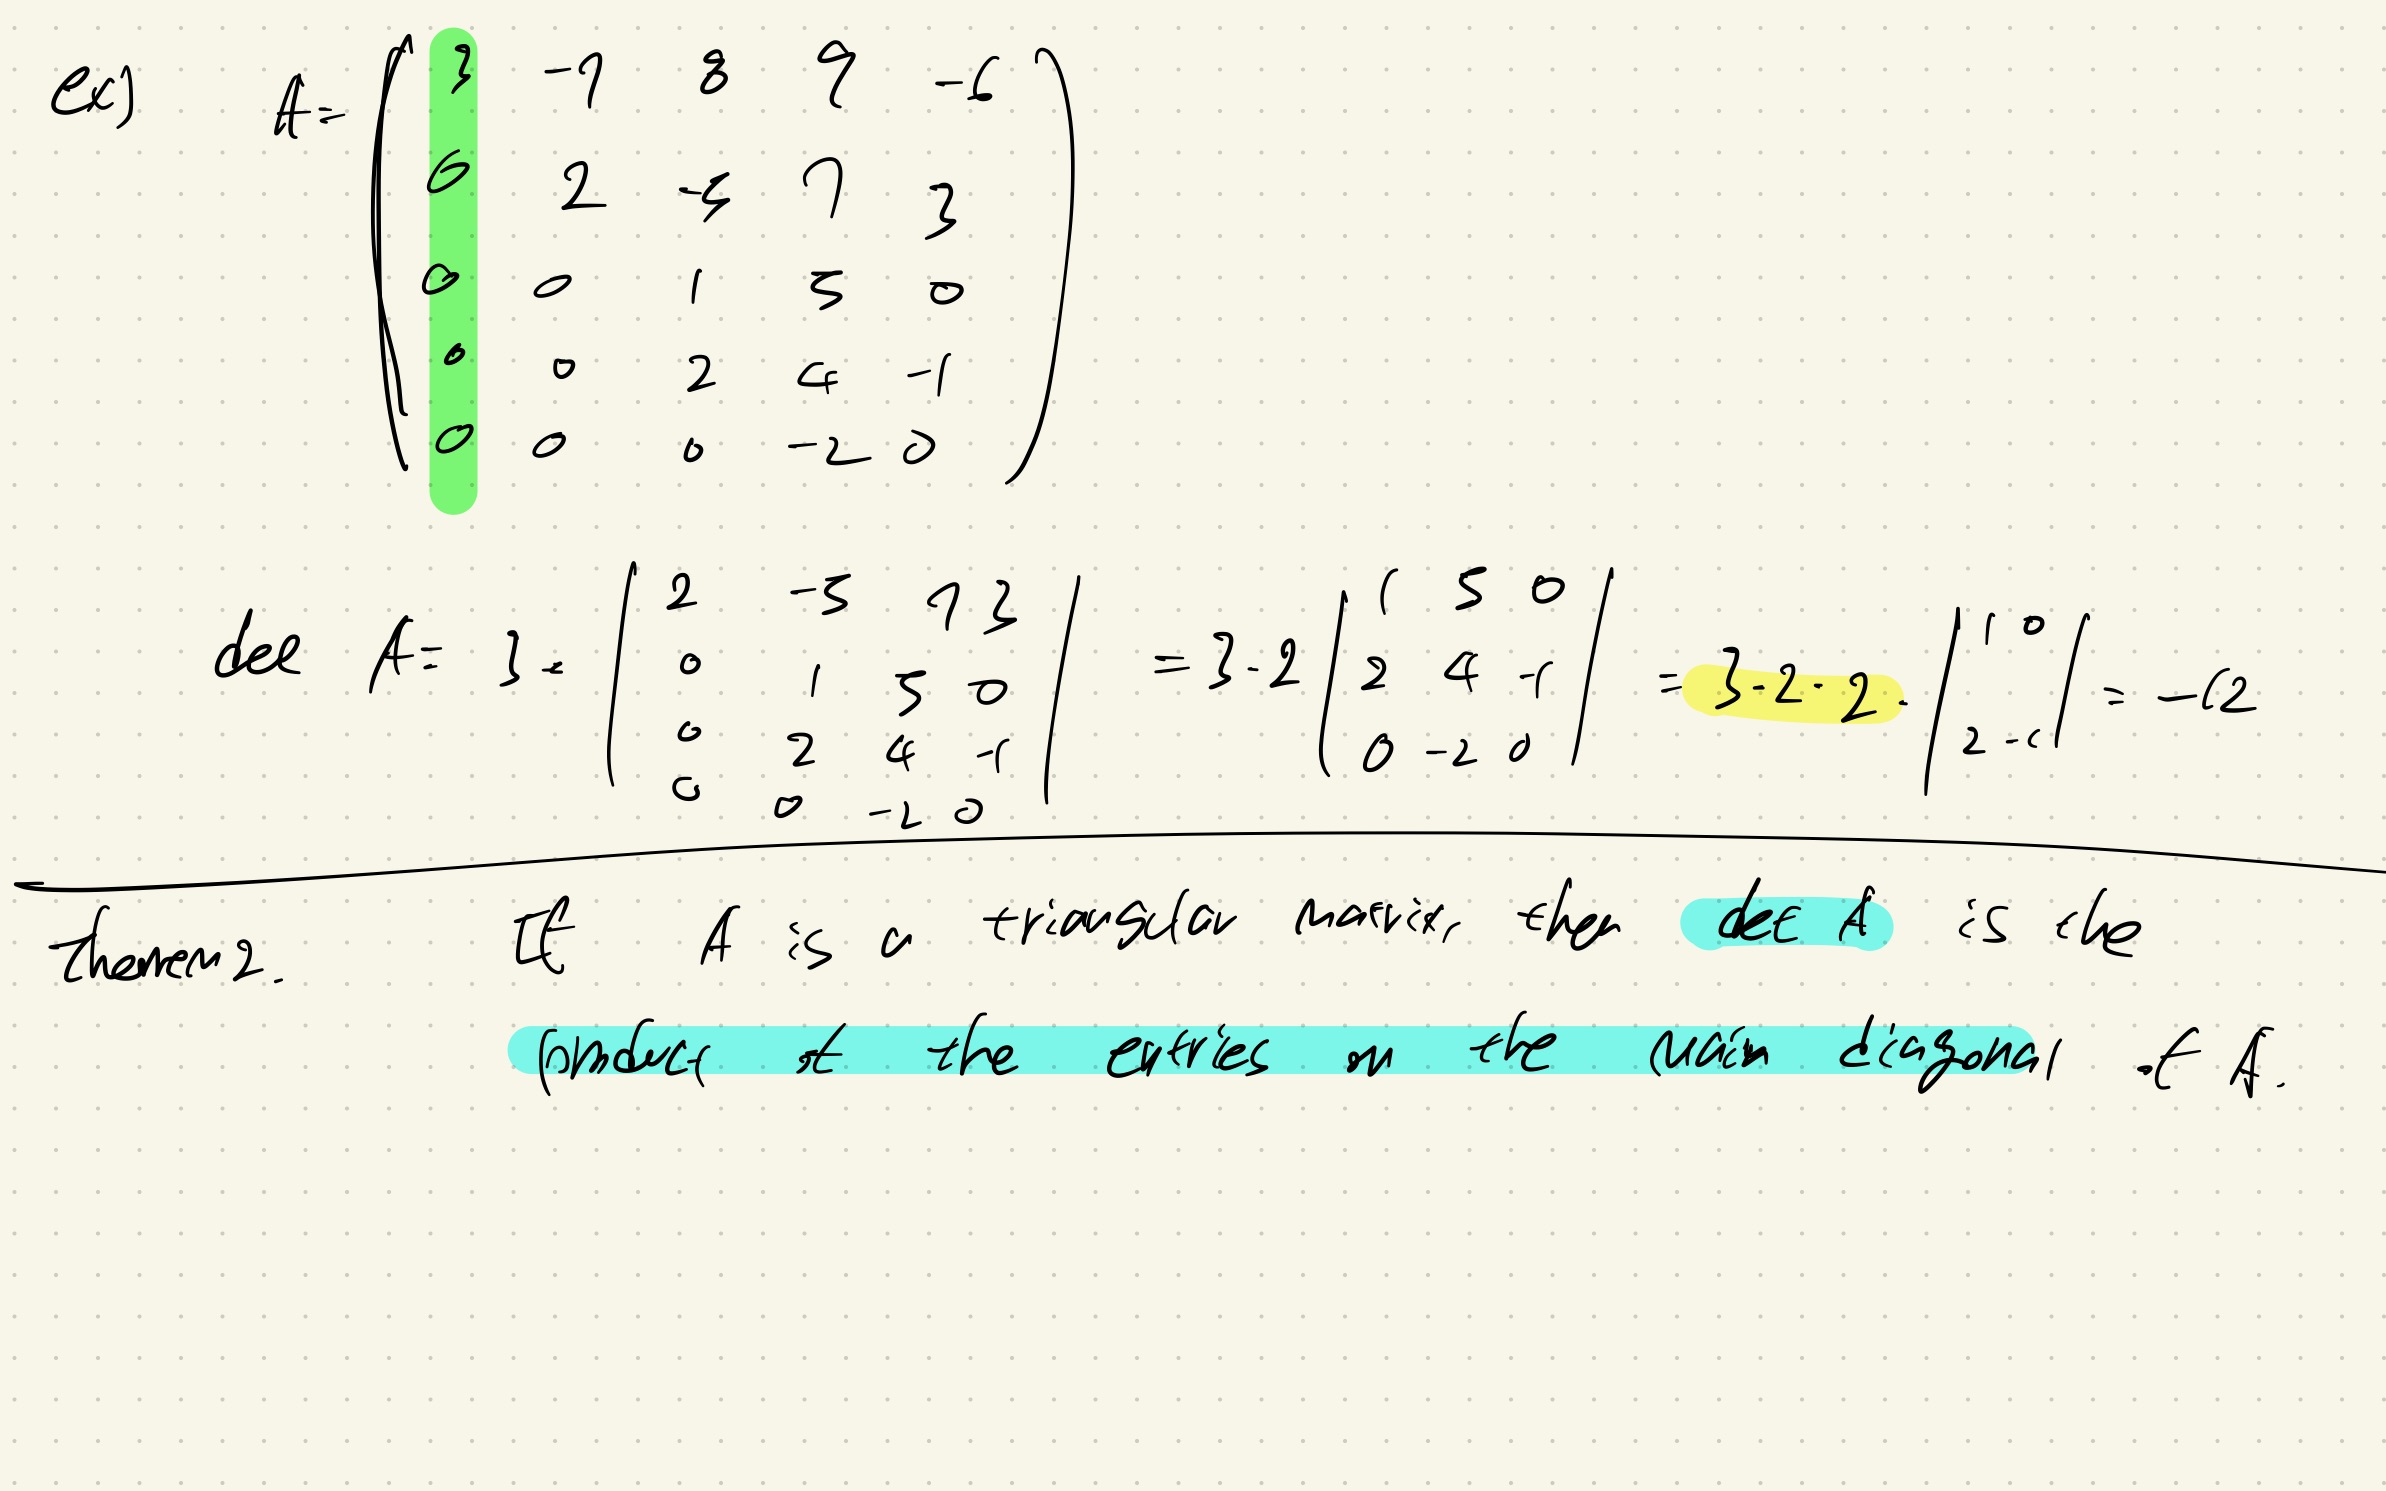 ex) A= ( 3 -7 8 9 -6
0 2 -5 7 3
0 0 1 5 0
0 0 2 4 -1
0 0 0 -2 0 )
det A= 3 · | 2 -5 7 3 | = 3·2 | 1 5 0 | = 3·2·2· | 1 0 | = -12
0 1 5 0 2 4 -1 2 -1
0 2 4 -1 0 -2 0
0 0 -2 0
Theorem 2. If A is a triangular matrix, then det A is the
product of the entries on the main diagonal of A.